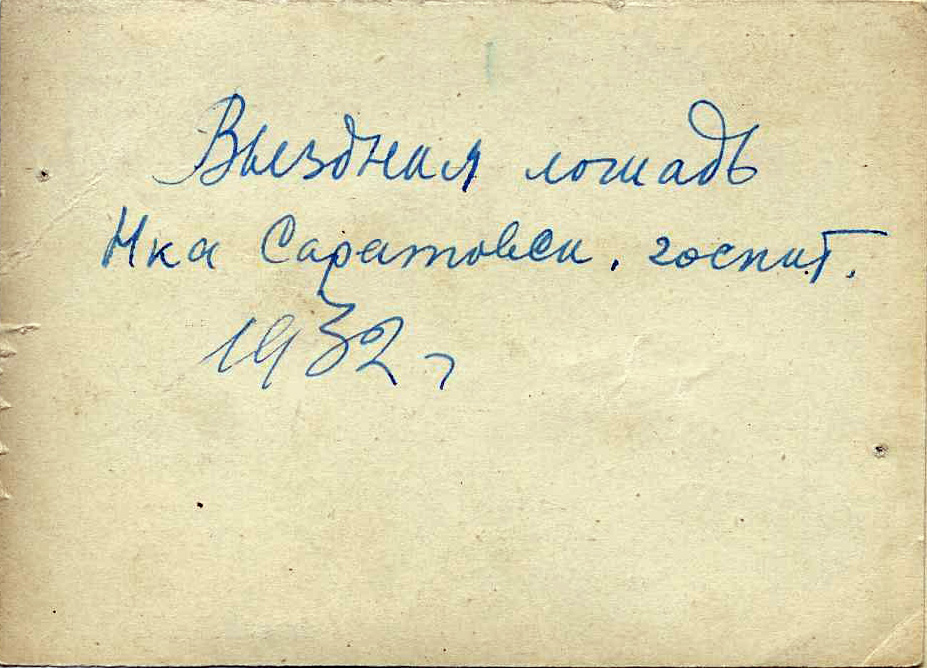 Выездная лошадь
Нка Саратовск. госпит.
1932 г